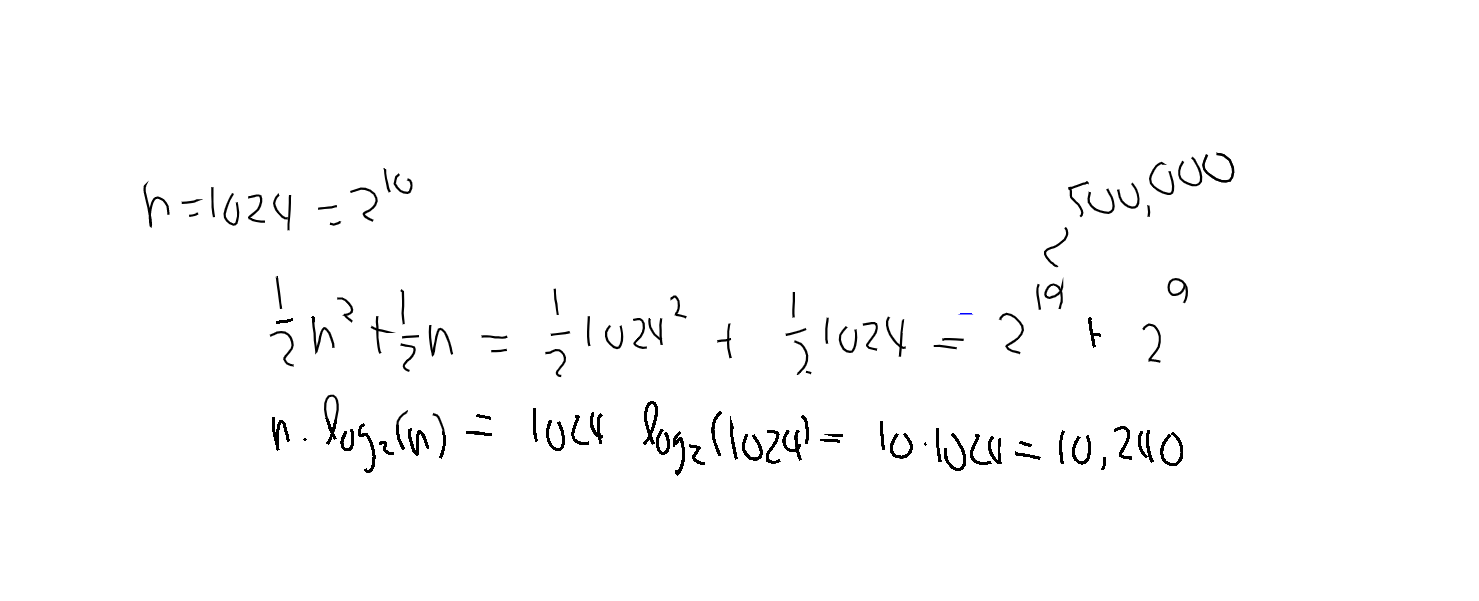 500,000
n=1024 = 2^10
1/2 n^2 + 1/2 n = 1/2 1024^2 + 1/2 1024 = 2^19 + 2^9
n. log_2(n) = 1024 log_2(1024) = 10·1024 = 10,240